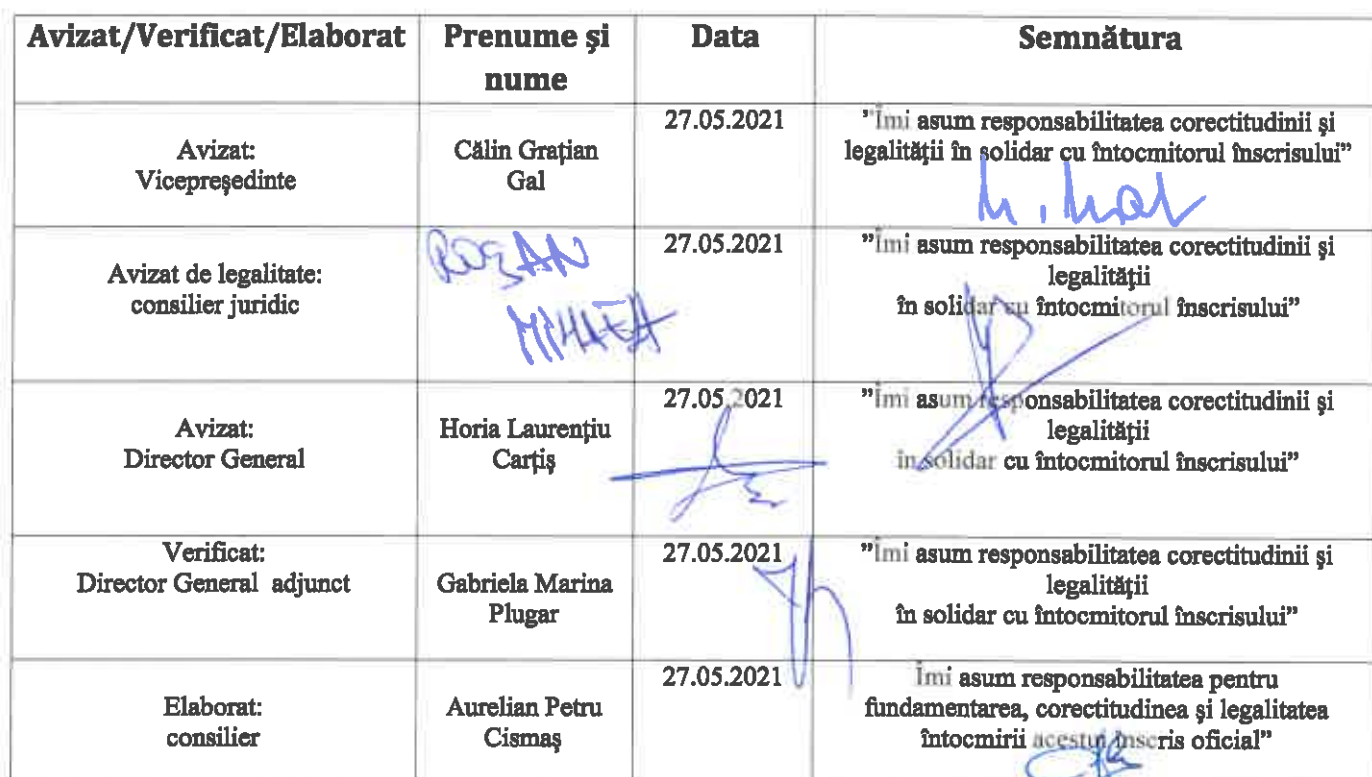 Avizat/Verificat/Elaborat
Prenume și
nume
Data
Semnătura
Avizat:
Vicepreședinte
Călin Grațian
Gal
27.05.2021
"Îmi asum responsabilitatea corectitudinii și
legalității în solidar cu întocmitorul înscrisului”
Avizat de legalitate:
consilier juridic
ROȘAN
MIHAEA
27.05.2021
”Îmi asum responsabilitatea corectitudinii și
legalității
în solidar cu întocmitorul înscrisului”
Avizat:
Director General
Horia Laurențiu
Cartiș
27.05.2021
”Îmi asum responsabilitatea corectitudinii și
legalității
în solidar cu întocmitorul înscrisului”
Verificat:
Director General adjunct
Gabriela Marina
Plugar
27.05.2021
”Îmi asum responsabilitatea corectitudinii și
legalității
în solidar cu întocmitorul înscrisului”
Elaborat:
consilier
Aurelian Petru
Cismaș
27.05.2021
Îmi asum responsabilitatea pentru
fundamentarea, corectitudinea și legalitatea
întocmirii acestui înscris oficial”